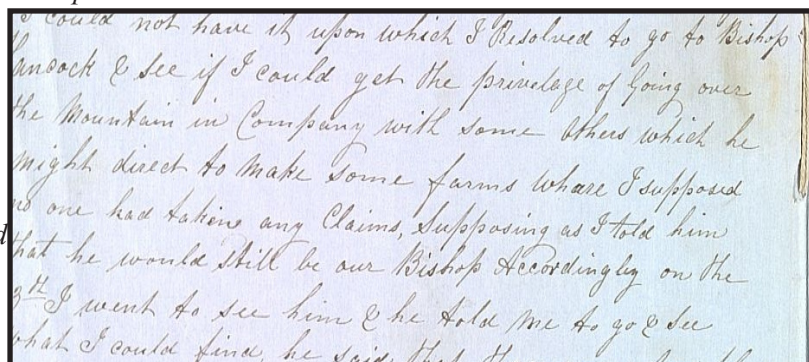 I could not have it upon which I Resolved to go to Bishop
ancock & See if I could get the privelage of Going over
the Mountain in Company with some Others which he
might direct to Make some farms whare I supposed
no one had takeing any Claims, Supposing as I told him
that he would Still be our Bishop Accordingley on the
I went to See him & he told me to go & See
what I could find, he said that